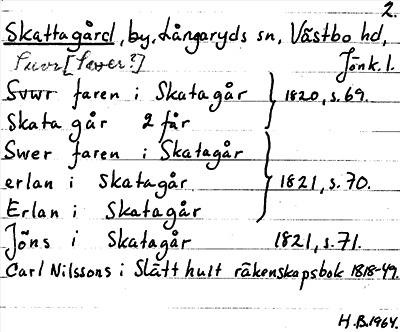 2.
Skattagård, by, Långaryds sn, Västbo hd,
Suvr [Sever?] Jönk. l.
Svwr faren i Skatagår } 1820, s. 69.
Skata går 2 får
Swer faren i Skatagår
erlan i Skatagår } 1821, s. 70.
Erlan i Skatagår
Jöns i Skatagår 1821, s. 71.
Carl Nilssons i Slätthult räkenskapsbok 1818-49.
H.B. 1964.